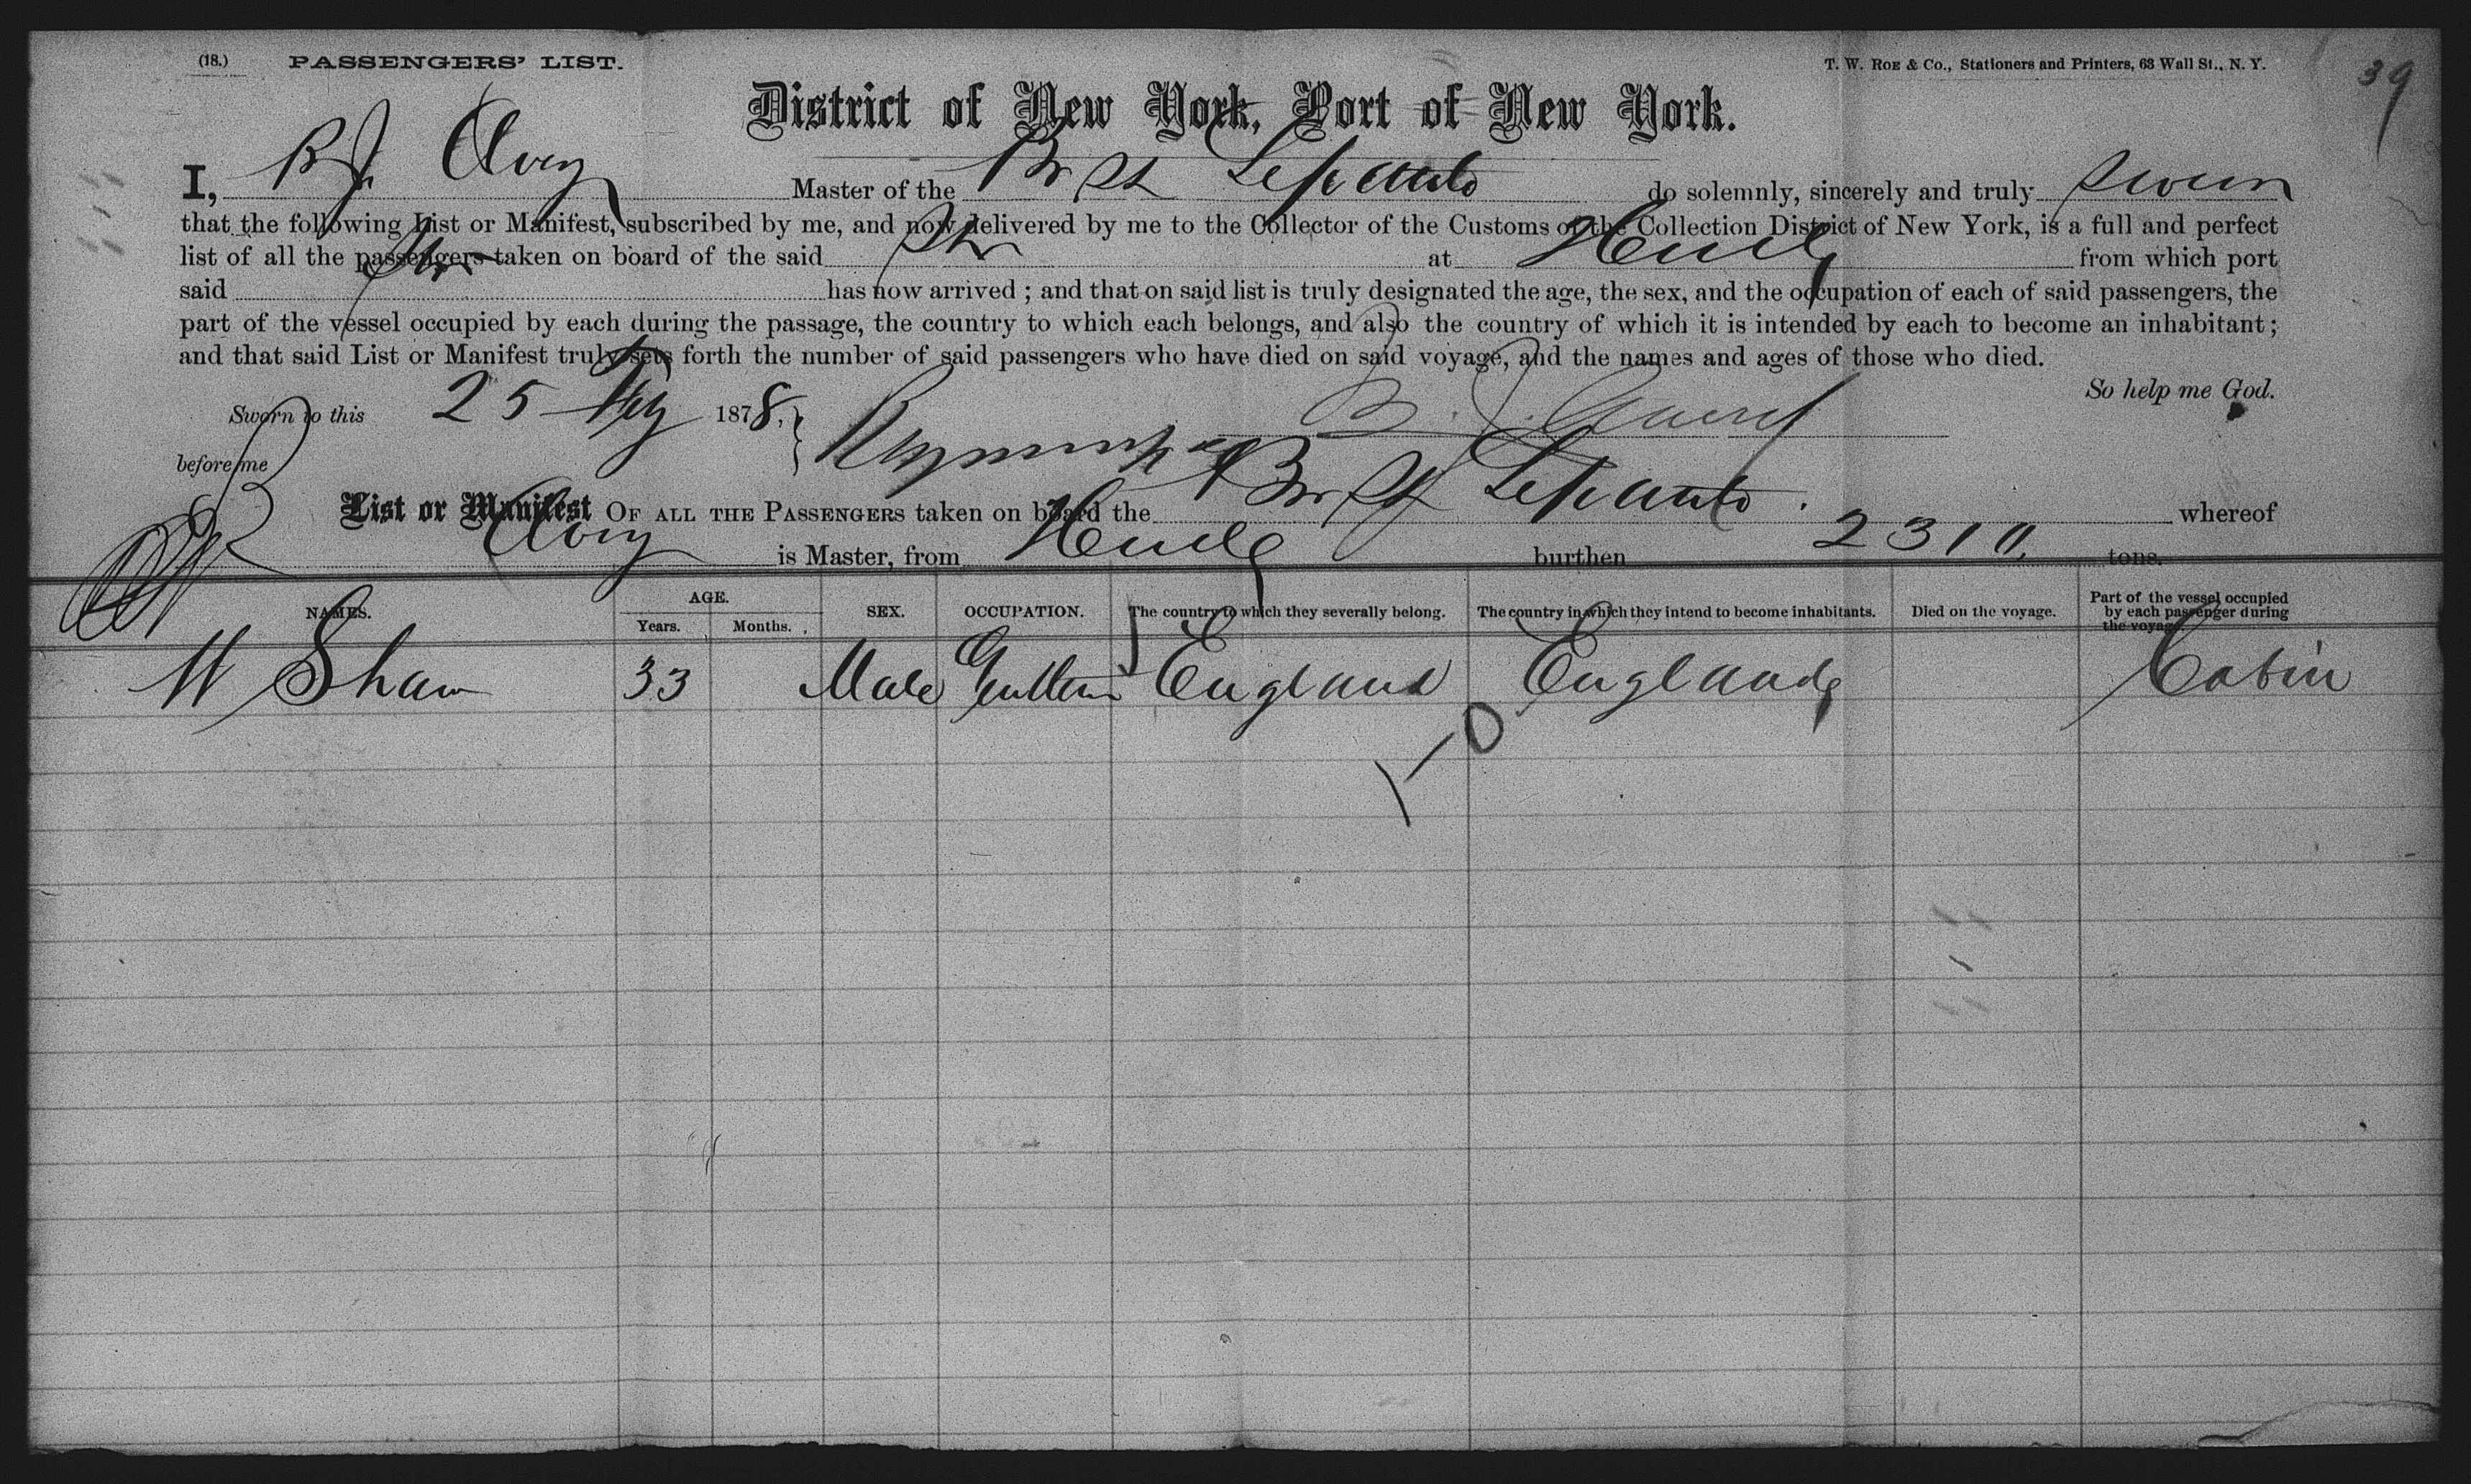 (18.) PASSENGERS' LIST. T. W. ROE & Co., Stationers and Printers, 63 Wall St., N. Y. 39
District of New York, Port of New York.
I, B J. Avery Master of the Br St Lepanto do solemnly, sincerely and truly swear
that the following List or Manifest, subscribed by me, and now delivered by me to the Collector of the Customs of the Collection District of New York, is a full and perfect
list of all the passengers taken on board of the said Str at Hull from which port
said Str has now arrived ; and that on said list is truly designated the age, the sex, and the occupation of each of said passengers, the
part of the vessel occupied by each during the passage, the country to which each belongs, and also the country of which it is intended by each to become an inhabitant ;
and that said List or Manifest truly sets forth the number of said passengers who have died on said voyage, and the names and ages of those who died.
So help me God.
Sworn to this 25 1878, B. J.
before me
List or Manifest OF ALL THE PASSENGERS taken on board the Br St Lepanto. whereof
is Master, from Hull burthen 2310. tons.
NAMES. AGE. Years. Months. SEX. OCCUPATION. The country to which they severally belong. The country in which they intend to become inhabitants. Died on the voyage. Part of the vessel occupied by each passenger during the voyage.
W Shaw 33 Male England England Cabin
1 - 0